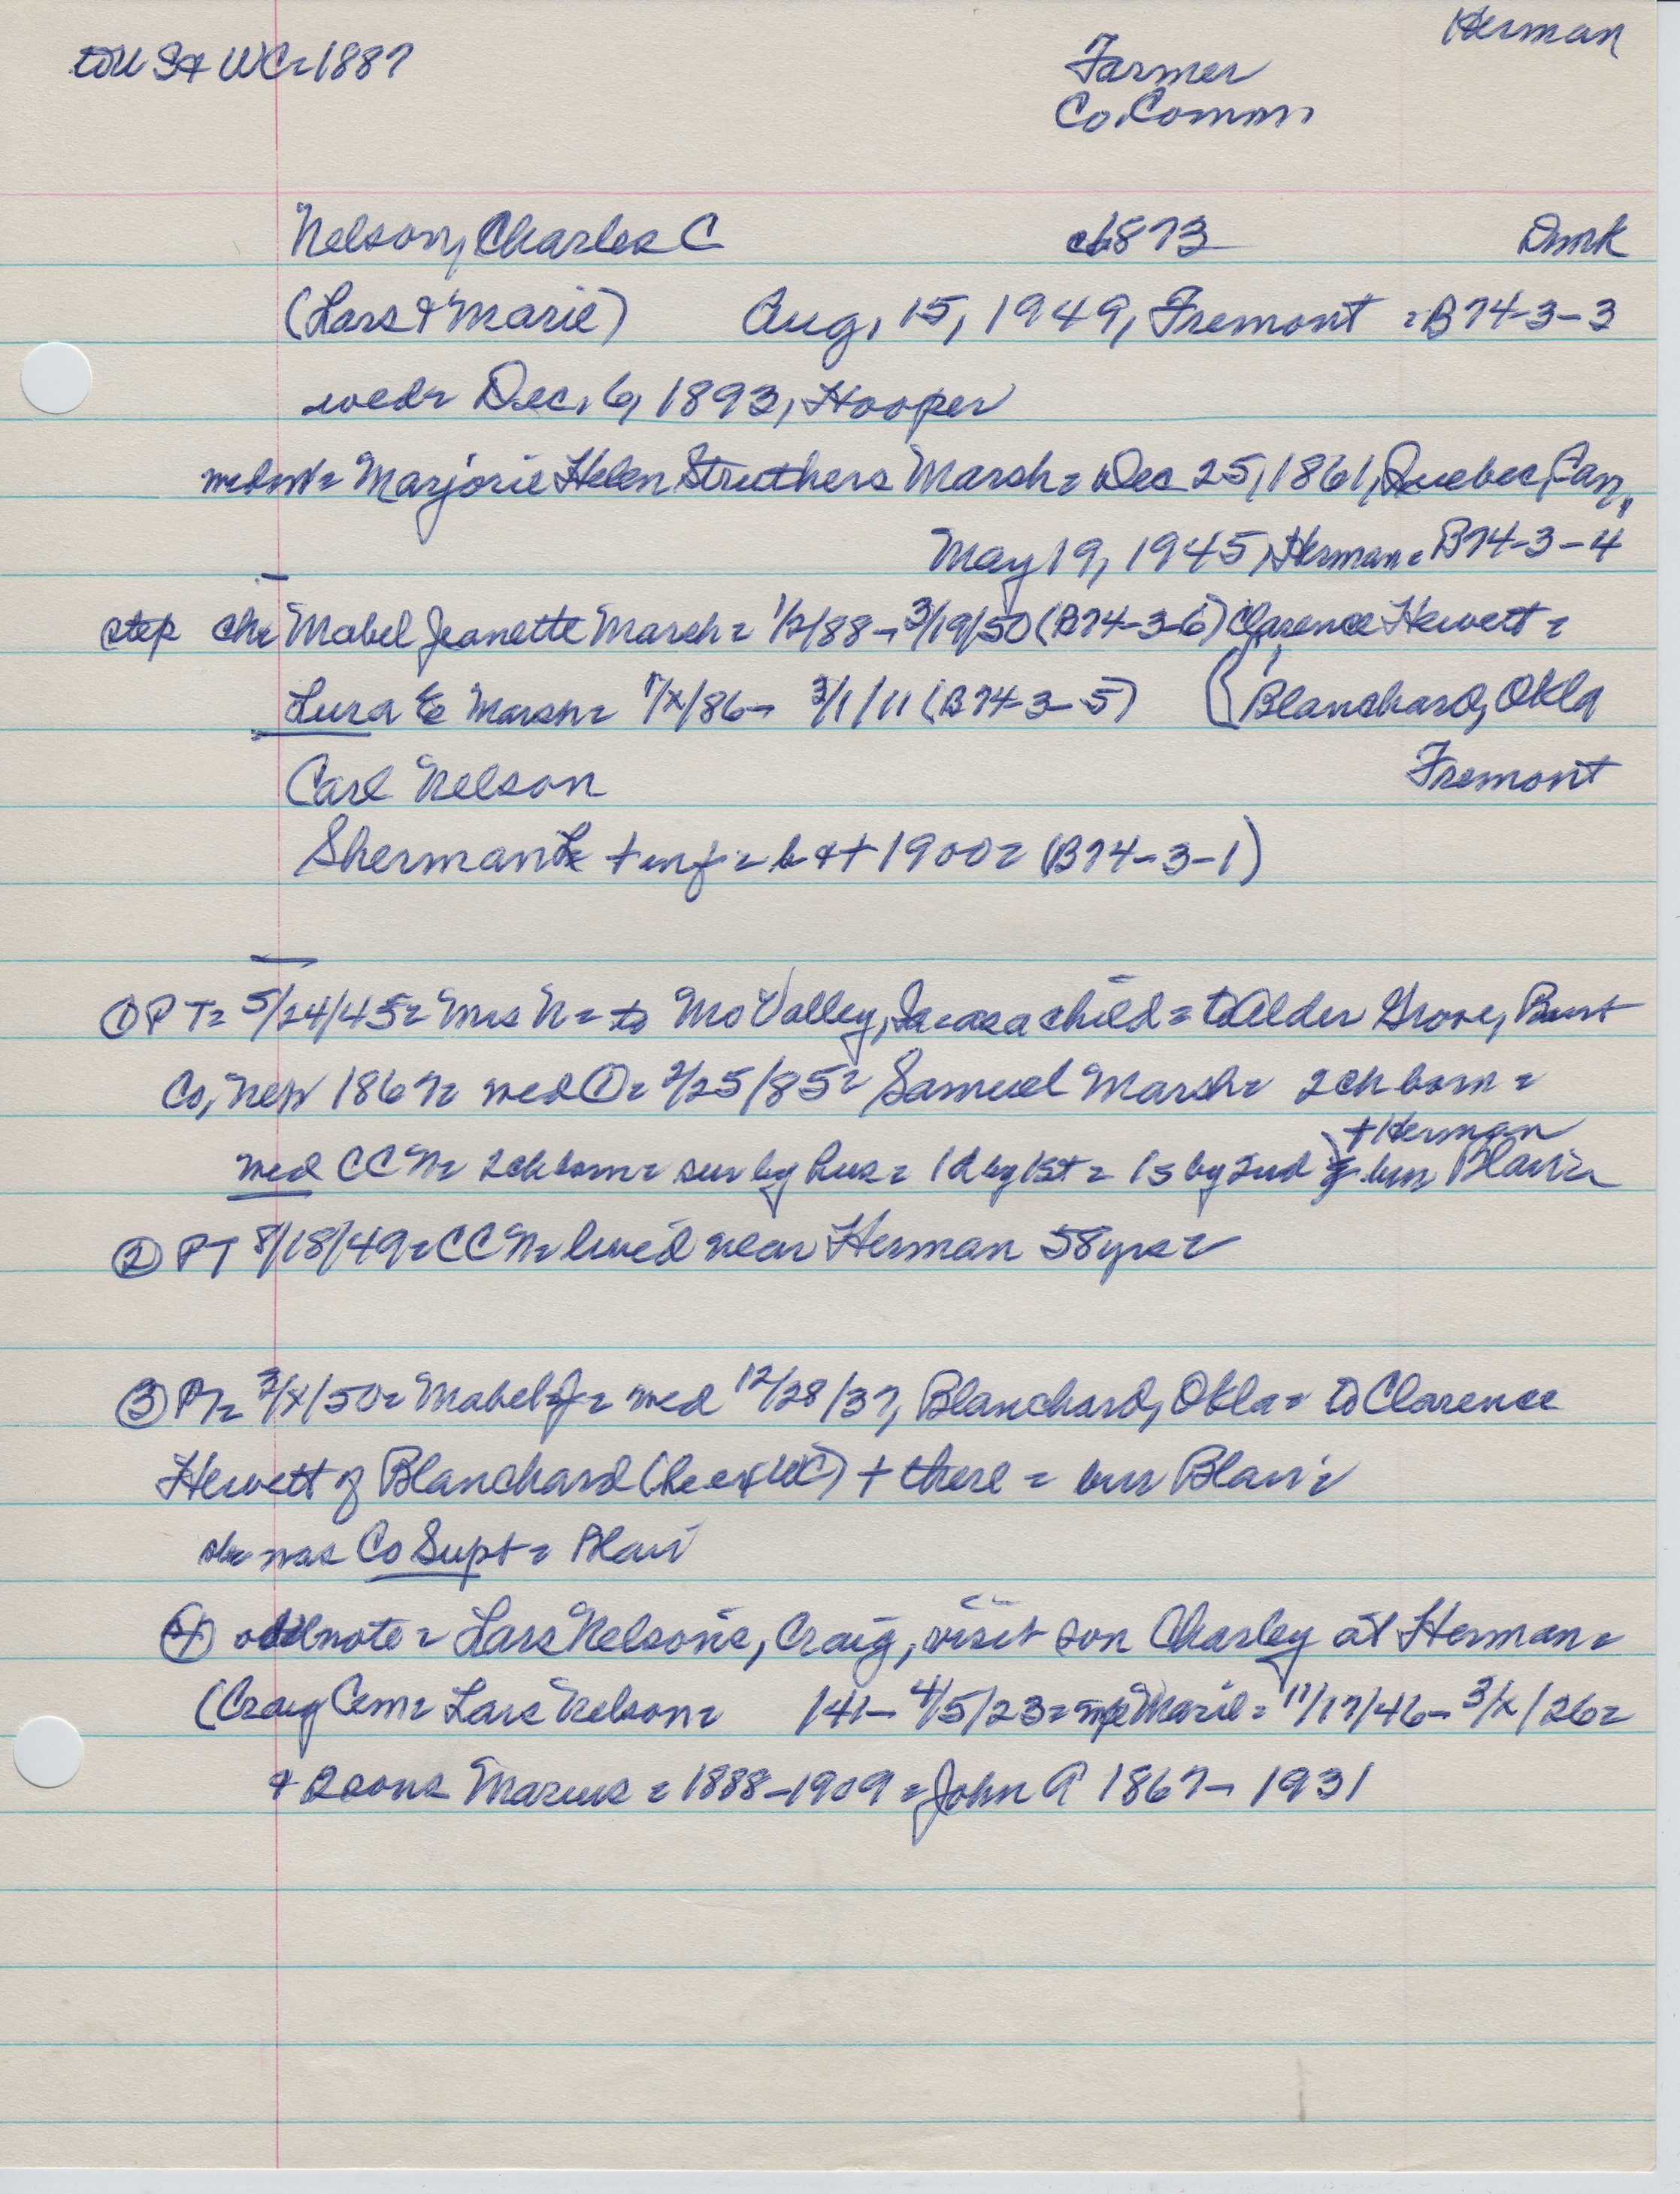 to US & WC = 1887
Herman
Farmer
Co. Comm
Nelson, Charles C c1873 Dmk
(Lars & Marie) Aug, 15, 1949, Fremont = B74-3-3
wed = Dec, 6, 1893, Hooper
Marjorie Helen Struthers Marsh = Dec 25, 1861, Quebec, Can,
May 19, 1945, Herman = B74-3-4
step ch = Mabel Jeanette Marsh = 1/2/88 - 3/19/50 (B74-3-6) Clarence Hewett =
Lura E Marsh = /x/86 - 3/1/11 (B74-3-5) { Blanchard, Okla
Carl Nelson Fremont
Sherman L + inf = b & + 1900 = (B74-3-1)
① PT = 5/24/45 = Mrs N = to Mo Valley, Ia = as a child = to Alder Grove, Burt
Co, Neb 1867 = wed ① = 2/25/85 = Samuel Marsh = 2 ch born =
wed CCN = 2 ch born = sur by hus = 1 d by 1st = 1 s by 2nd bur Blair =
+ Herman
② PT 8/18/49 = CCN = lived near Herman 58 yrs =
③ P = 3/x/50 = Mabel J = wed 12/28/37, Blanchard, Okla = to Clarence
Hewett of Blanchard (he ex WC) + there = bur Blair =
she was Co Supt = Blair
④ note = Lars Nelsons, Craig, visit son Charley at Herman =
(Craig Cem = Lars Nelson = /41 - 4/5/23 = Marie = 11/17/46 - 3/x/26 =
& 2 sons Marius = 1888-1909 = John A 1867 - 1931